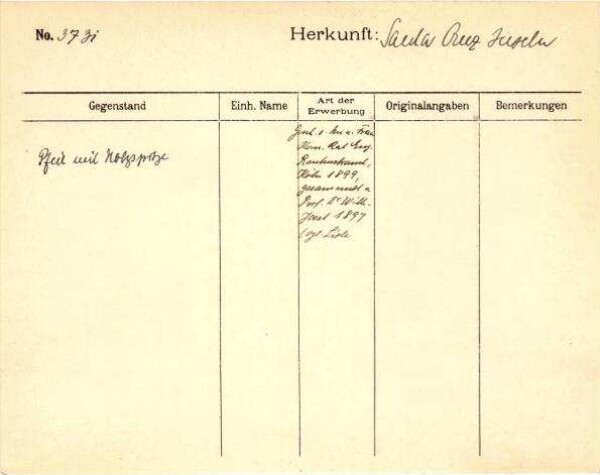 No. 373i
Herkunft: Santa Cruz Inseln
Gegenstand
Einh. Name
Art der
Erwerbung
Originalangaben
Bemerkungen
Pfeil mit Holzspitze
Gesch. v. Frau
Kom. Rat Eug.
Rautenstrauch,
Köln 1899,
gesammelt v.
Prof. Dr Wilh.
Joest 1897
Liste